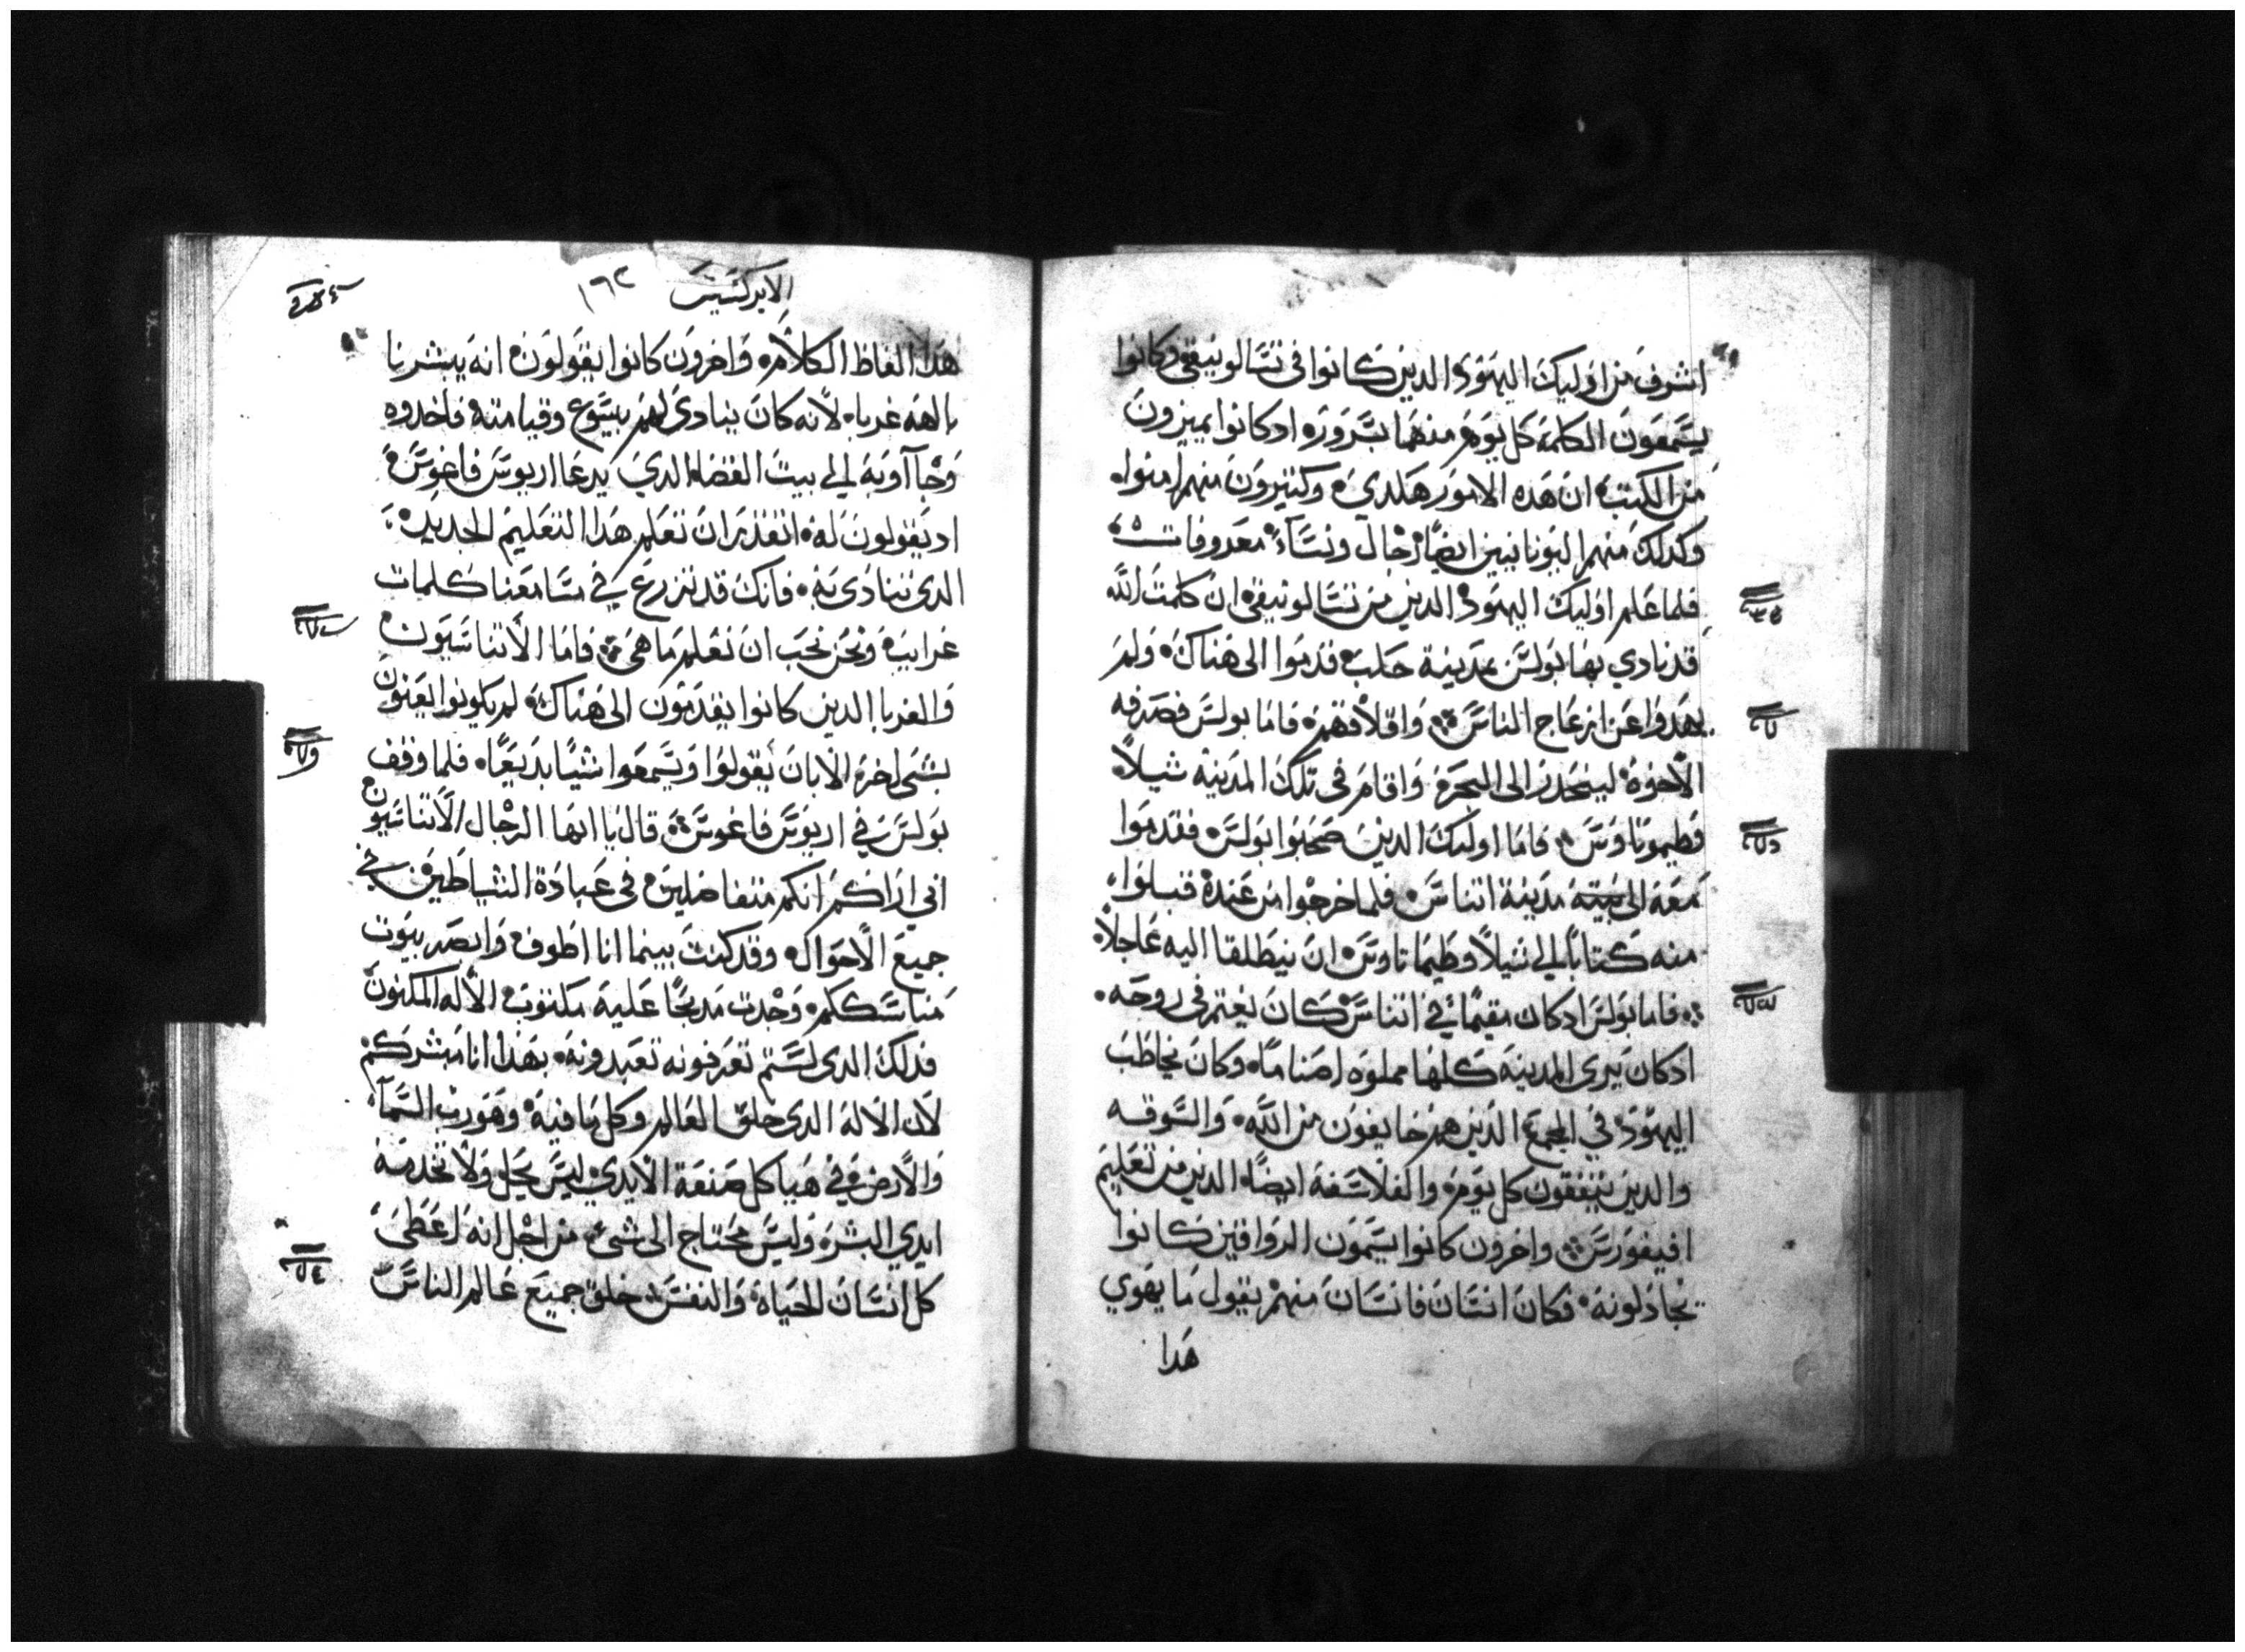 اشرف من اوليك اليهود الدين كانوا فى تسالونيقى وكانوا
يسمعون الكلمة كل يوم منهما بسرور ادكانوا يميزون
من الكتب ان هده الامور هكدى وكثيرون منهم امنوا
وكدلك منهم اليونانيين ايضًا رجال ونسآء معروفات
فلما علم اوليك اليهود الدين من تسالونيقى ان كلمت الله
قد نادي بها بولس بمدينة حلب قدموا الى هناك ولم
يهدوا عن ازعاج الناس واقلاقهم فاما بولس فصرفه
الاخوة لينحدر الى البحر واقام فى تلك المدينه شيلا
وطيموتاوس فاما اوليك الدين صحبوا بولس فقدموا
معه الى مدينة اتناس فلما خرجوا من عنده قبلوا
منه كتابًا الي شيلا وطيماتاوس ان ينطلقا اليه عاجلا
فاما بولس ادكان مقيمًا في اتناس كان يغتم فى روحه
ادكان يرى المدينه كلها مملوه اصنامًا وكان يخاطب
اليهود في المجمع الدين هم خايفون من الله والسوقه
والدين يتفقون كل يوم والفلاسفة ايضًا الدين من تعليم
افيقورس واخرون كانوا يسمون الرواقين كانوا
يجادلونه فكان انسان فانسان منهم يقول ما يهوي
هدا
الابركسيس ١٦٢
هدا الفاظ الكلام واخرون كانوا يقولون انه يبشرنا
بالهه غربا لانه كان ينادى لهم بيسوع وقيامته فاخدوه
وجآاوبه الي بيت القضا الدي يدعا اريوس فاغوس
اد يقولون له انقدر ان نعلم هدا التعليم الجديد
الدى تنادى به فانك قد تزرع في مسامعنا كلمات
غرايب ونحن نحب ان نعلم ما هى فاما الاتناسيون
والغربا الدين كانوا يقدمون الى هناك لم يكونوا يعنون
بشى اخر الا بان يقولوا ويسمعوا شيًا بديعًا فلما وقف
بولس في اريوس فاغوس قال يا ايها الرجال الاتناسيون
اني اراكم انكم متفاضلين فى عبادة الشياطين في
جميع الاحوال وقد كنت بينما انا اطوف وابصر بيوت
مناسككم وجدت مدبحًا عليه مكتوب الاله المكنون
فدلك الدى لستم تعرفونه تعبدونه بهدا انا مبشركم
لان الاله الدى خلق العالم وكل ما فيه وهو رب السمآ
والارض في هياكل صنعة الايدي ليس يحل ولا تخدمه
ايدي البشر وليس محتاج الى شى من اجل انه اعطى
كل انسان الحياه والنفس خلق جميع عالم الناس